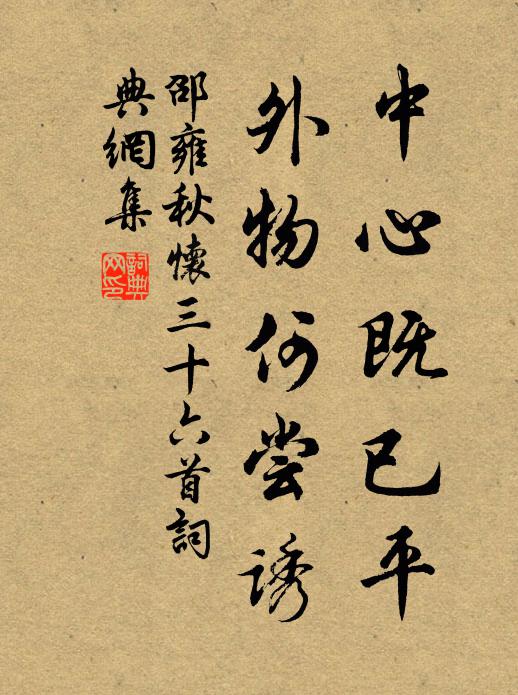 中心既已平
外物何尝诱
邵雍秋懷三十六首詞
典網集
詞典
网印